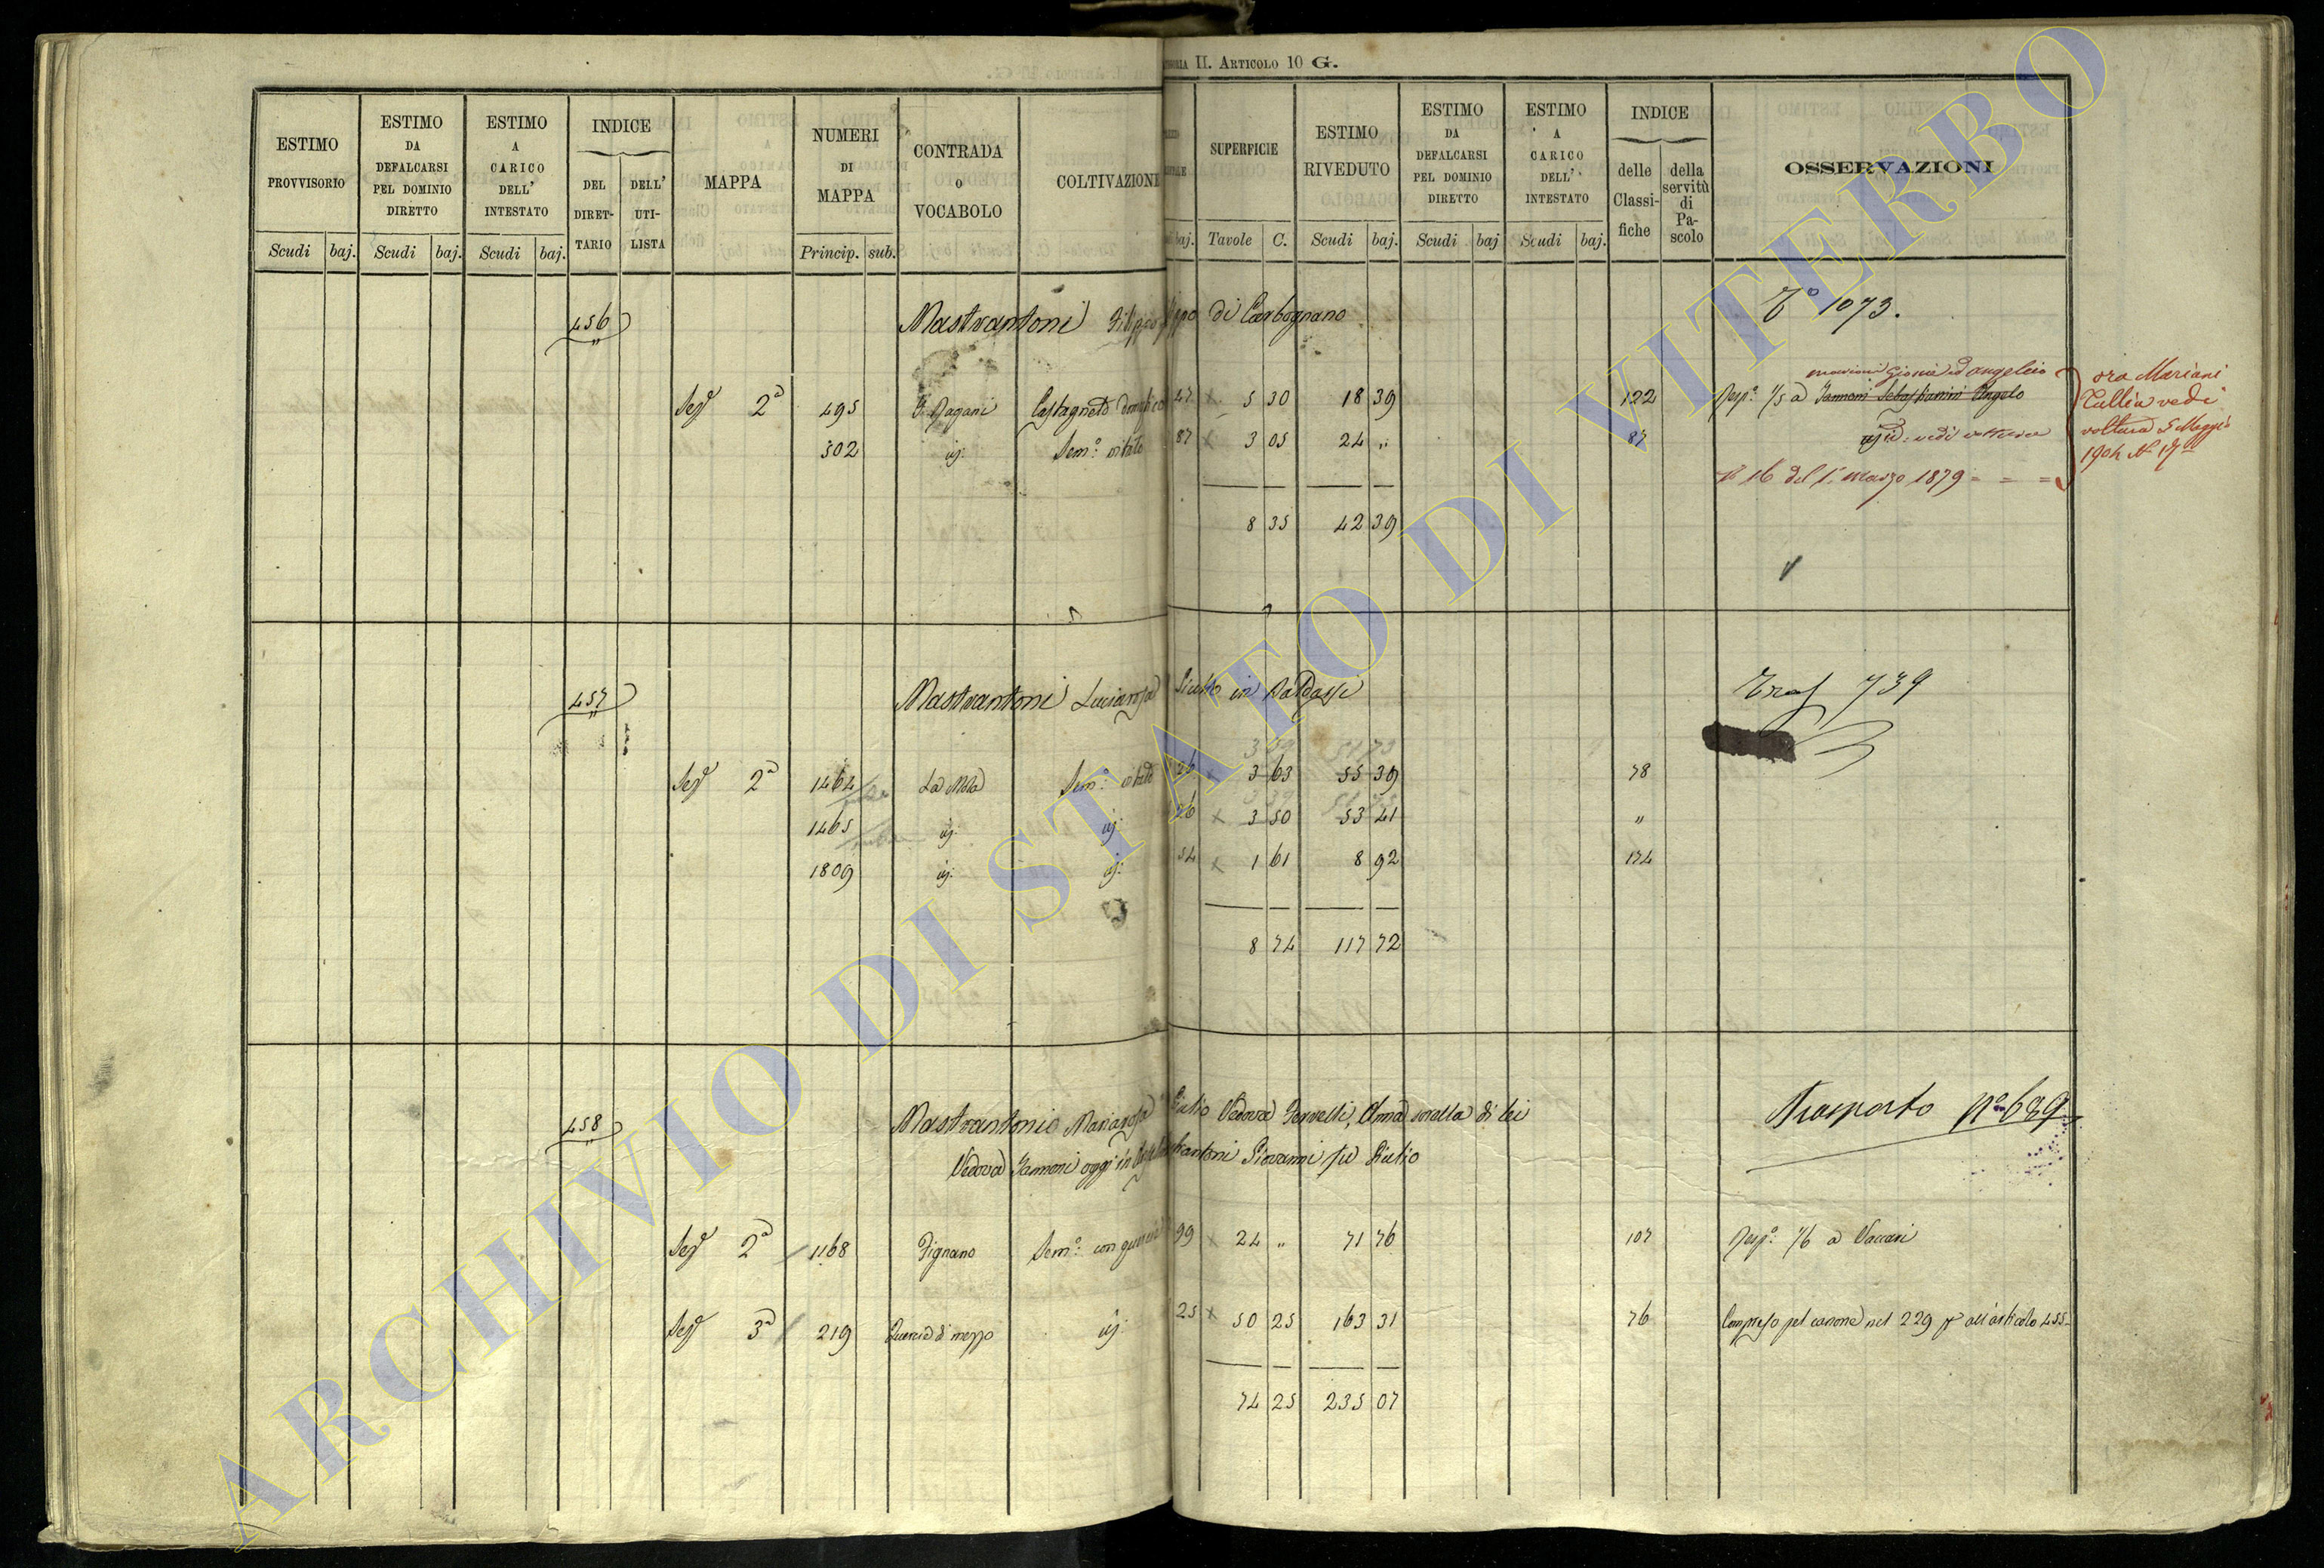 II. Articolo 10 G.
ESTIMO PROVVISORIO
ESTIMO DA DEFALCARSI PEL DOMINIO DIRETTO
ESTIMO A CARICO DELL' INTESTATO
INDICE
DEL DIRET-TARIO
DELL' UTI-LISTA
MAPPA
NUMERI DI MAPPA
CONTRADA O VOCABOLO
COLTIVAZIONE
SUPERFICIE
ESTIMO RIVEDUTO
ESTIMO DA DEFALCARSI PEL DOMINIO DIRETTO
ESTIMO A CARICO DELL' INTESTATO
INDICE
delle Classi-fiche
della servitù di Pa-scolo
OSSERVAZIONI
Scudi baj. Scudi baj. Scudi baj. Princip. sub. baj. Tavole C. Scudi baj. Scudi baj Scudi baj.
456 Mastrantoni Filippo di Carbognano
Tº 1073.
Sezº 2ª 495 Castagneto 47 x 5 30 18 39 122 Respº 1/5 a Jannoni Sebastianini Angelo
502 id. Semº vitato 87 x 3 05 24 " 87
ora Mariani
Tullia vedi
voltura 5 Maggio
1904 Nº
16 del 1º marzo 1879 = = =
8 35 42 39
457 Mastrantoni in Baldassi
Tras 739
3 39 51 73
Sezº 2ª 1464 La Mola Semº vitato 26 x 3 63 55 39 78
1465 id. id. 26 x 3 50 53 41 "
1809 id. id. 54 x 1 61 8 92 174
8 74 117 72
458 Mastrantoni Mariarosa Giulio Vedova sorella di lei
Vedova Jannoni oggi in Giovanni fu Giulio
Trasporto Nº 689
Sezº 2ª 1168 Pignano Semº con querce 99 x 24 " 71 76 107 Respº 1/6 a Vaccari
Sezº 3ª 219 Quercia di mezzo id. 25 x 50 25 163 31 76 Compreso pel canone nel 229 all'articolo 455
74 25 235 07
ARCHIVIO DI STATO DI VITERBO